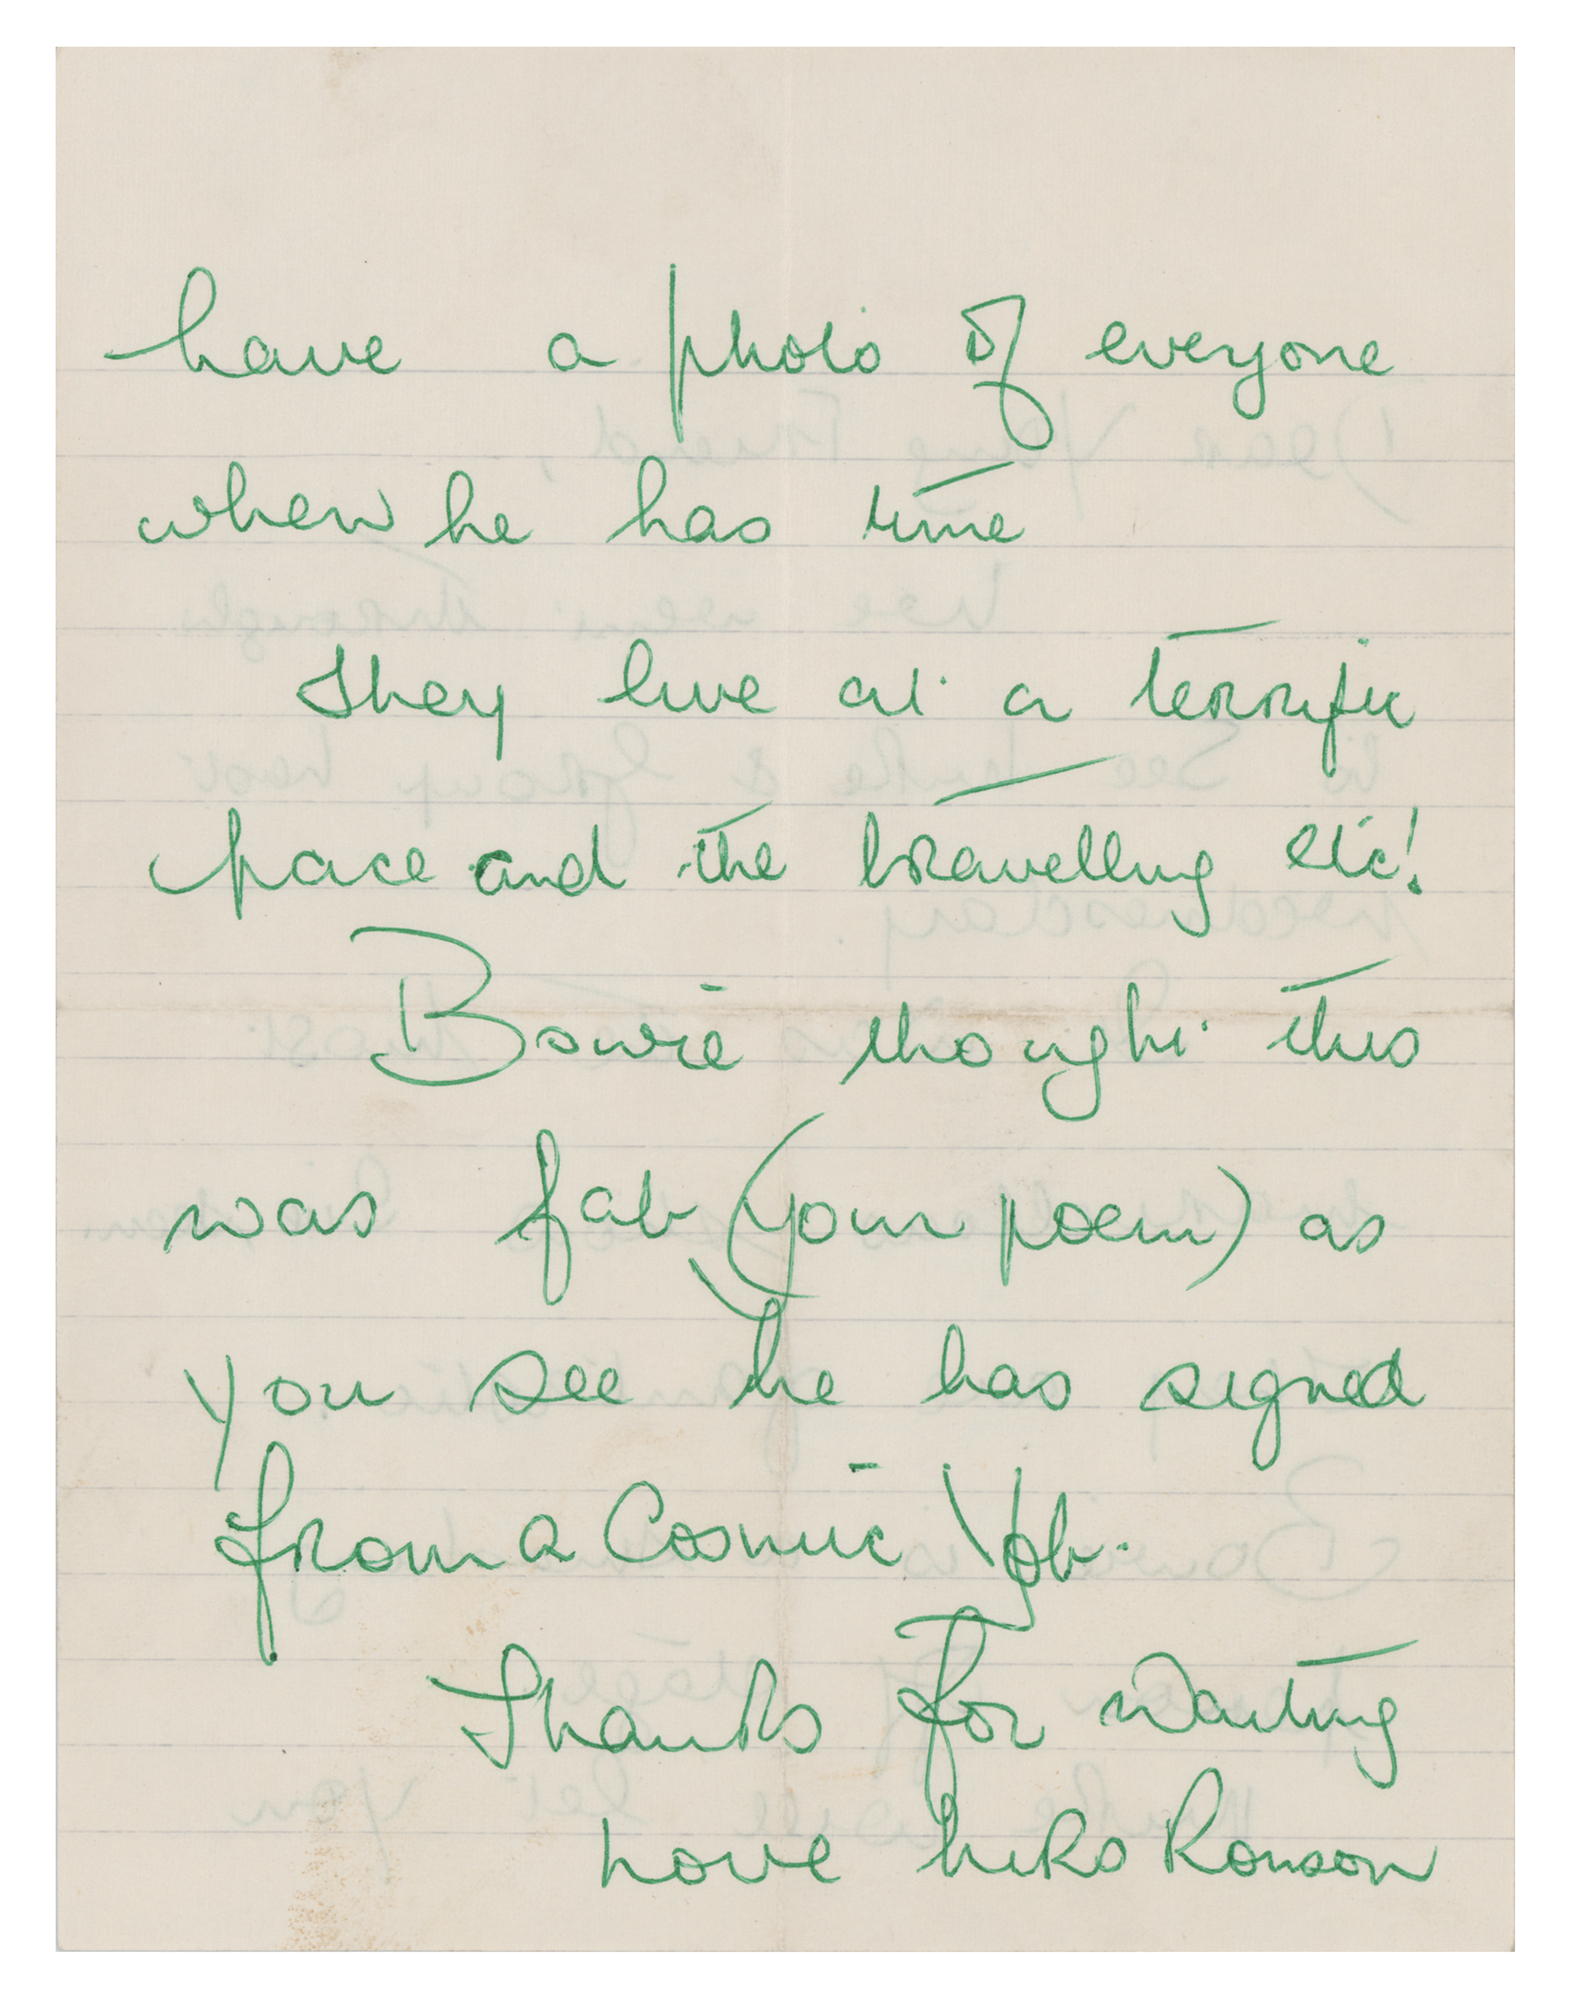 have a photo of everyone
when he has time
They live at a terrific
pace and the travelling etc!
Bowie thought this
was fab (your poem) as
you see he has signed
from a Cosmic Yob.
Thanks for Waiting
Love Mrs Ronson